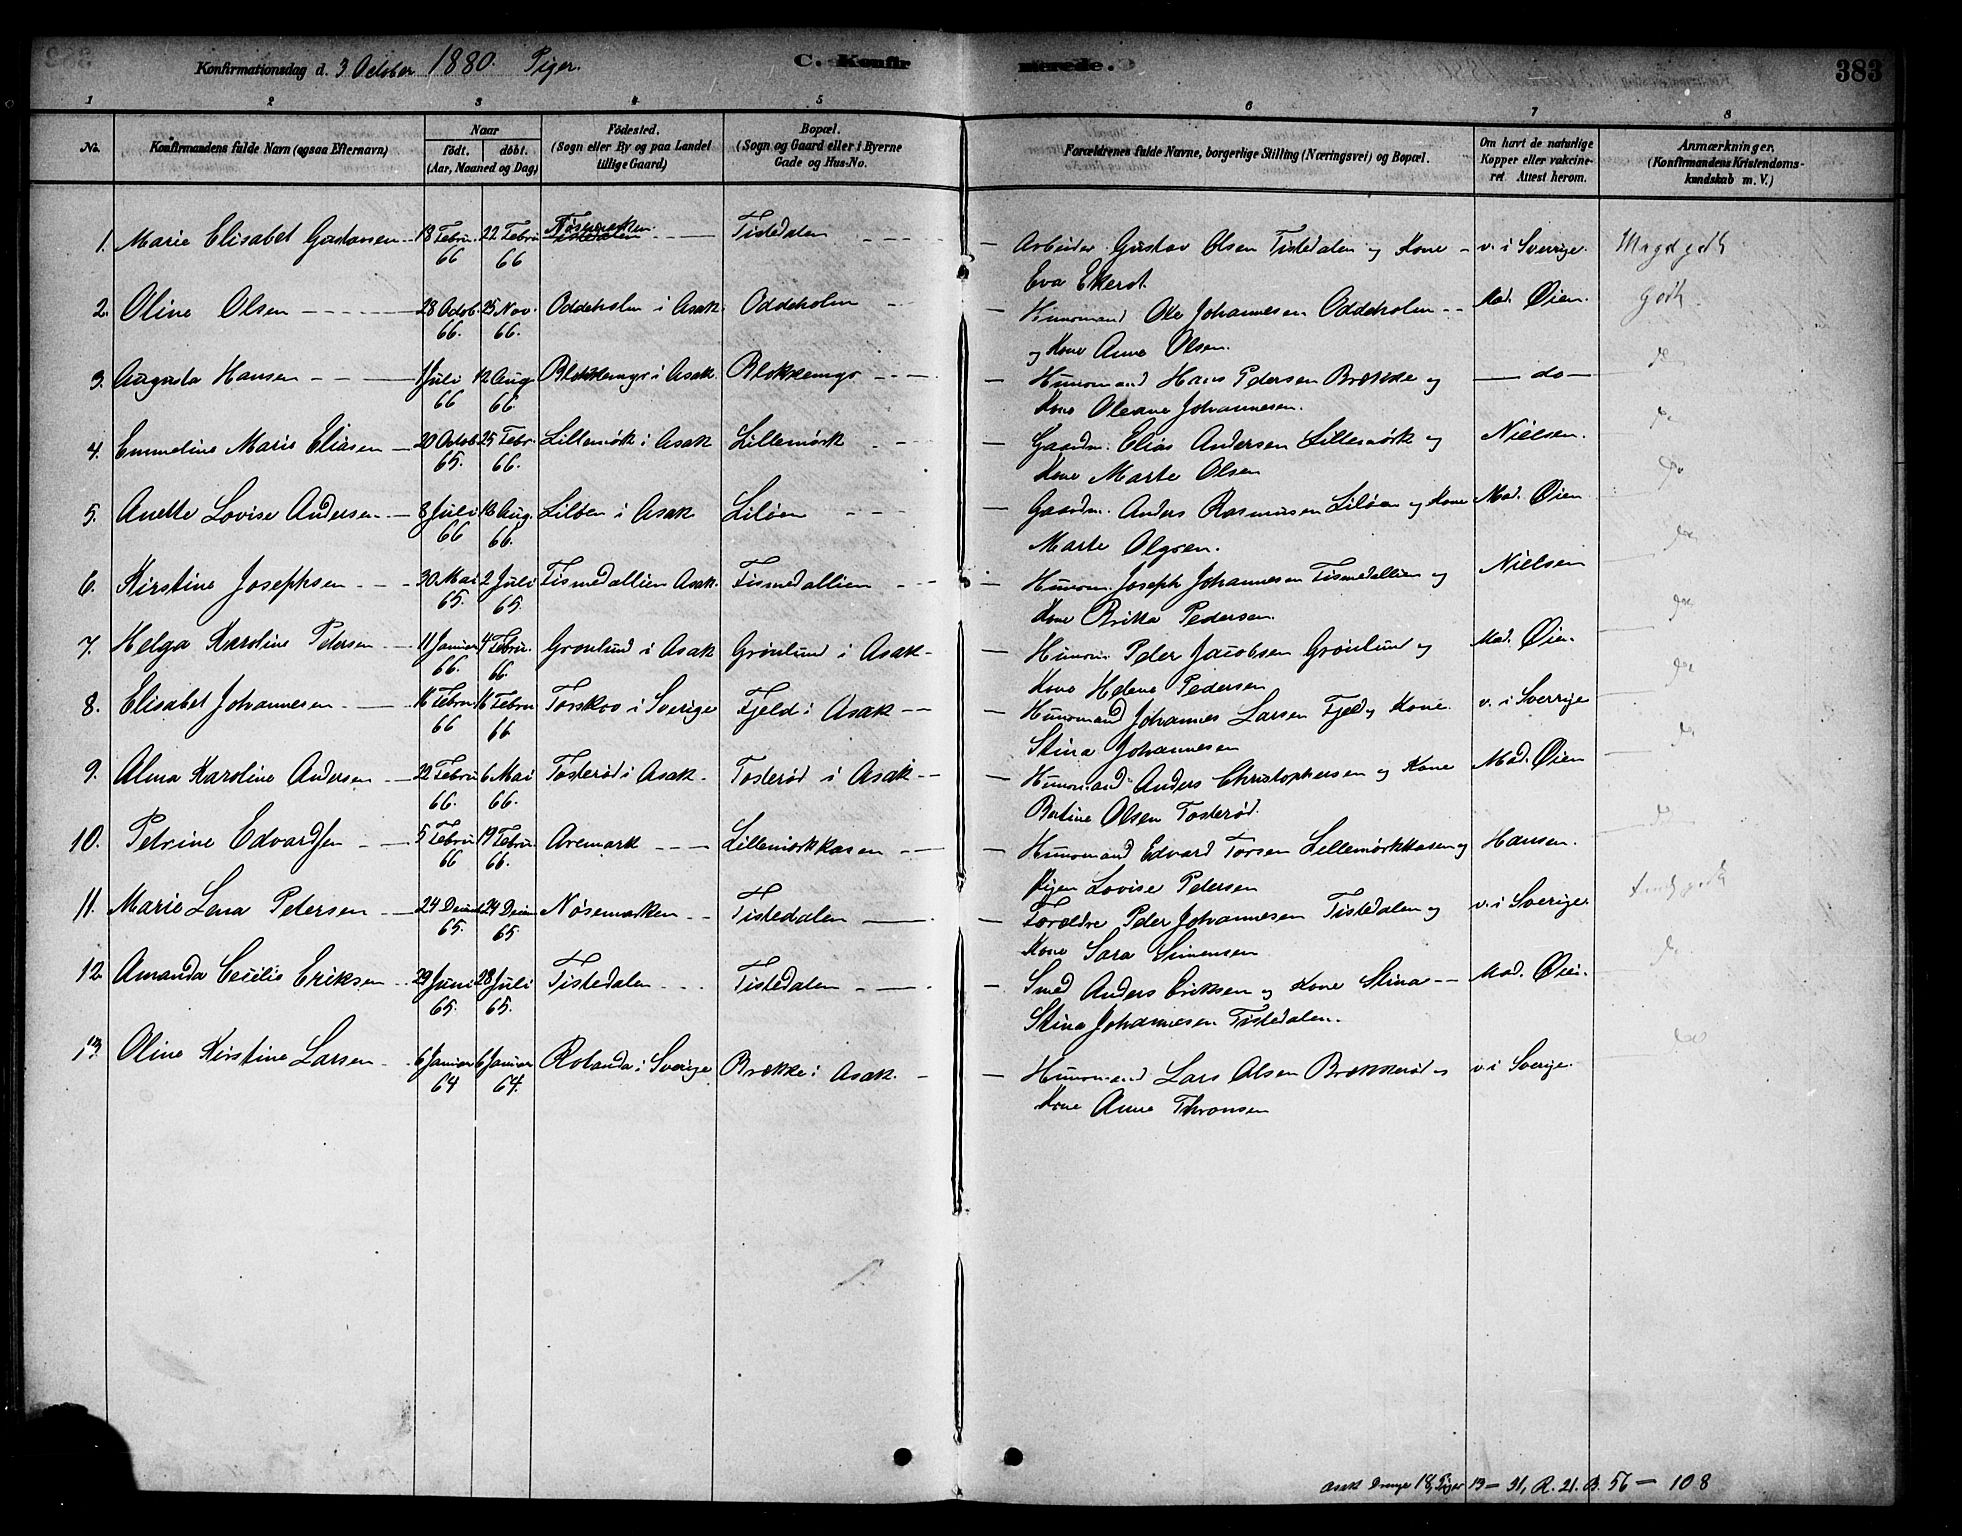 Konfirmationsdag d. 3 October 1880. Piger. C. Konfirmerede. 383
1 2 3 4 5 6 7 8
No. Konfirmandens fulde Navn (ogsaa Efternavn) Naar födt. döbt. (Aar, Maaned og Dag) Födested. (Sogn eller By og paa Landet tillige Gaard) Bopæl. (Sogn og Gaard eller i Byerne Gade og Hus-No. Forældrenes fulde Navne, borgerlige Stilling (Næringsvei) og Bopæl. Om havt de naturlige Kopper eller vakcineret. Attest herom. Anmærkninger. (Konfirmandens Kristendomskundskab m. V.)
1. Marie Elisabet Gustavsen 18 Febru 66 22 Febru 66 Nøsemarken Tistedalen Tistedalen Arbeider Gustav Olsen Tistedalen og Kone v. i Sverige. Meget godt
Eva Ekerot.
2. Oline Olsen 28 Octob. 66. 25 Nov. 66. Oddeholm i Asak. Oddeholm Husmand Ole Johannesen Oddeholm Mad. Øien. Godt.
og Kone Anne Olsen.
3. Augusta Hansen 1 Juli 66 12 Aug 66. Blokkemyr i Asak. Blokkemyr Husmand Hans Pedersen Brække og do do
Kone Oleane Johannesen.
4. Emmeline Marie Eliasen 20 Octob. 65. 25 Febr. 66. Lillemörk i Asak Lillemörk Gaardm. Elias Andersen Lillemörk og Nielsen. do
Kone Marte Olsen
5. Anette Lovise Andersen 8 Juli 66 18 Aug. 66. Liløen i Asak Liløen Gaardm. Anders Rasmusen Liløen og Kone Mad. Øien do
Marte Olgren.
6. Kirstine Josephsen 30 Mai 65. 2 Juli 65. Tismedallien Asak. Tismedallien Husm. Joseph Johannesen Tismedallien og Nielsen do
Kone Britta Pedersen.
7. Helga Karoline Petersen 11 Januar 66. 4 Febru. 66. Grønlund i Asak Grønlund i Asak Husm. Peder Jacobsen Grønlund og Mad. Øien. do
Kone Helene Pedersen
8. Elisabet Johannesen 16 Febru 66 16 Febru 66 Torskoo i Sverige Fjeld i Asak Husmand Johannes Larsen Fjeld og Kone. v. i Sverrige do
Stina Johannesen
9. Alma Karoline Andersen 22 Febru 66. 6 Mai 66. Tosterød i Asak Tosterød i Asak Husmand Anders Christophersen og Kone Mad. Øien do
Bertine Olsen Tosterød.
10. Petrine Edvardsen 5 Febru 66 19 Febru. 66. Aremark Lillemörkkasen Husmand Edvard Torsen Lillemörkkasen og Hansen. do
Pigen Lovise Petersen
11. Marie Lena Petersen 24 Decemb 65. 24 Decem 65 Nøsemarken Tistedalen Forældre Peder Johannesen Tistedalen og v. i Sverige. godt
Kone Sara Simensen
12. Amanda Cecilie Eriksen 29 Juni 65. 28 Juli 65. Tistedalen Tistedalen Smed Anders Eriksen og Kone Stina Mad. Øien. do
Stina Johannesen Tistedalen.
13. Oline Kirstine Larsen 6 Januar 64 6 Januar 64. Rolanda i Sverige Brække i Asak. Husmand Lars Olsen Brækkerød og v. i Sverige. do
Kone Anne Thronsen
Asak Drenge 18, Piger 13 — 31, R. 21. B. 56 — 108